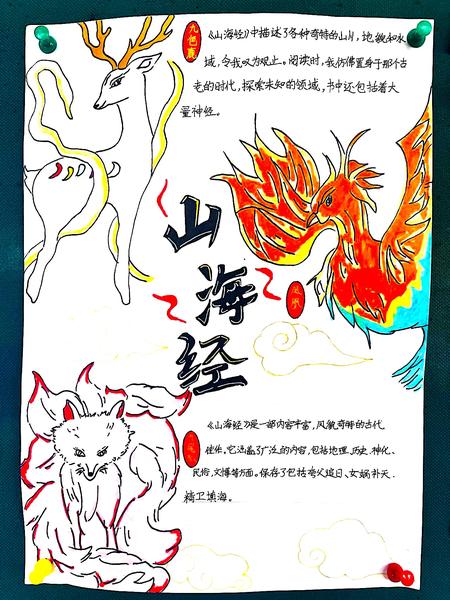 九色鹿
《山海经》中描述了各种奇特的山川,地貌和水
域,令我叹为观止。阅读时,我仿佛置身于那个古
老的时代,探索未知的领域,书中还包括着大
量神经。
山
海
经
《山海经》是一部内容丰富,风貌奇特的古代
它涵盖了广泛的内容,包括地理、历史、神化、
民俗、文博等方面。保存了包括夸父逐日、女娲补天、
精卫填海。